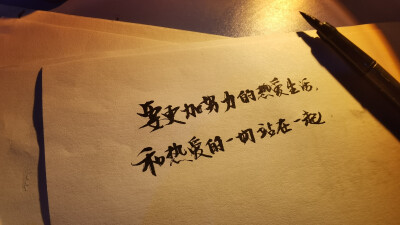 要更加努力的热爱生活,
和热爱的一切站在一起